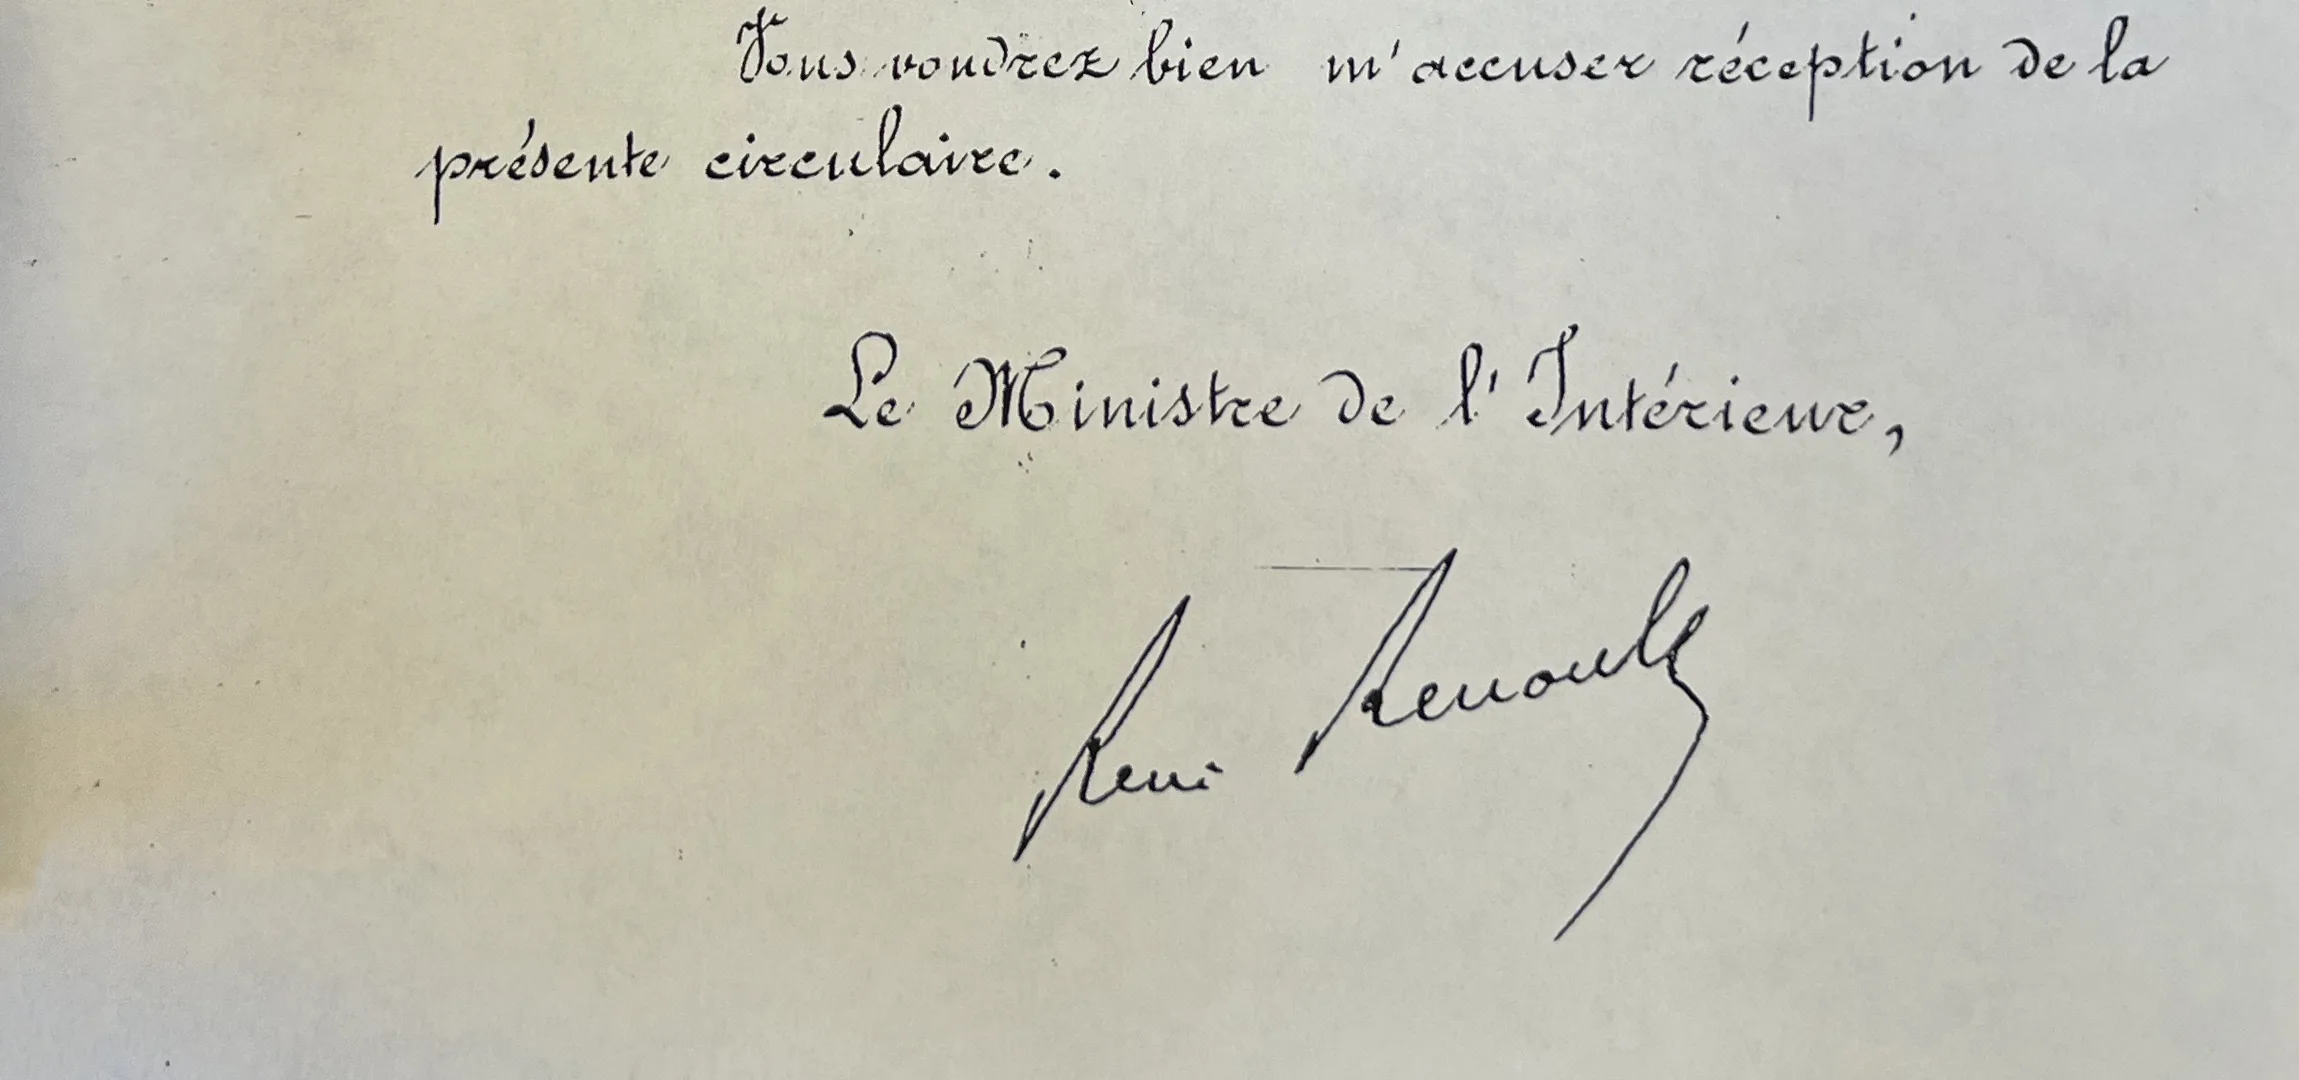 Vous voudrez bien m'accuser réception de la
présente circulaire.
Le Ministre de l'Intérieur,
René Renoult